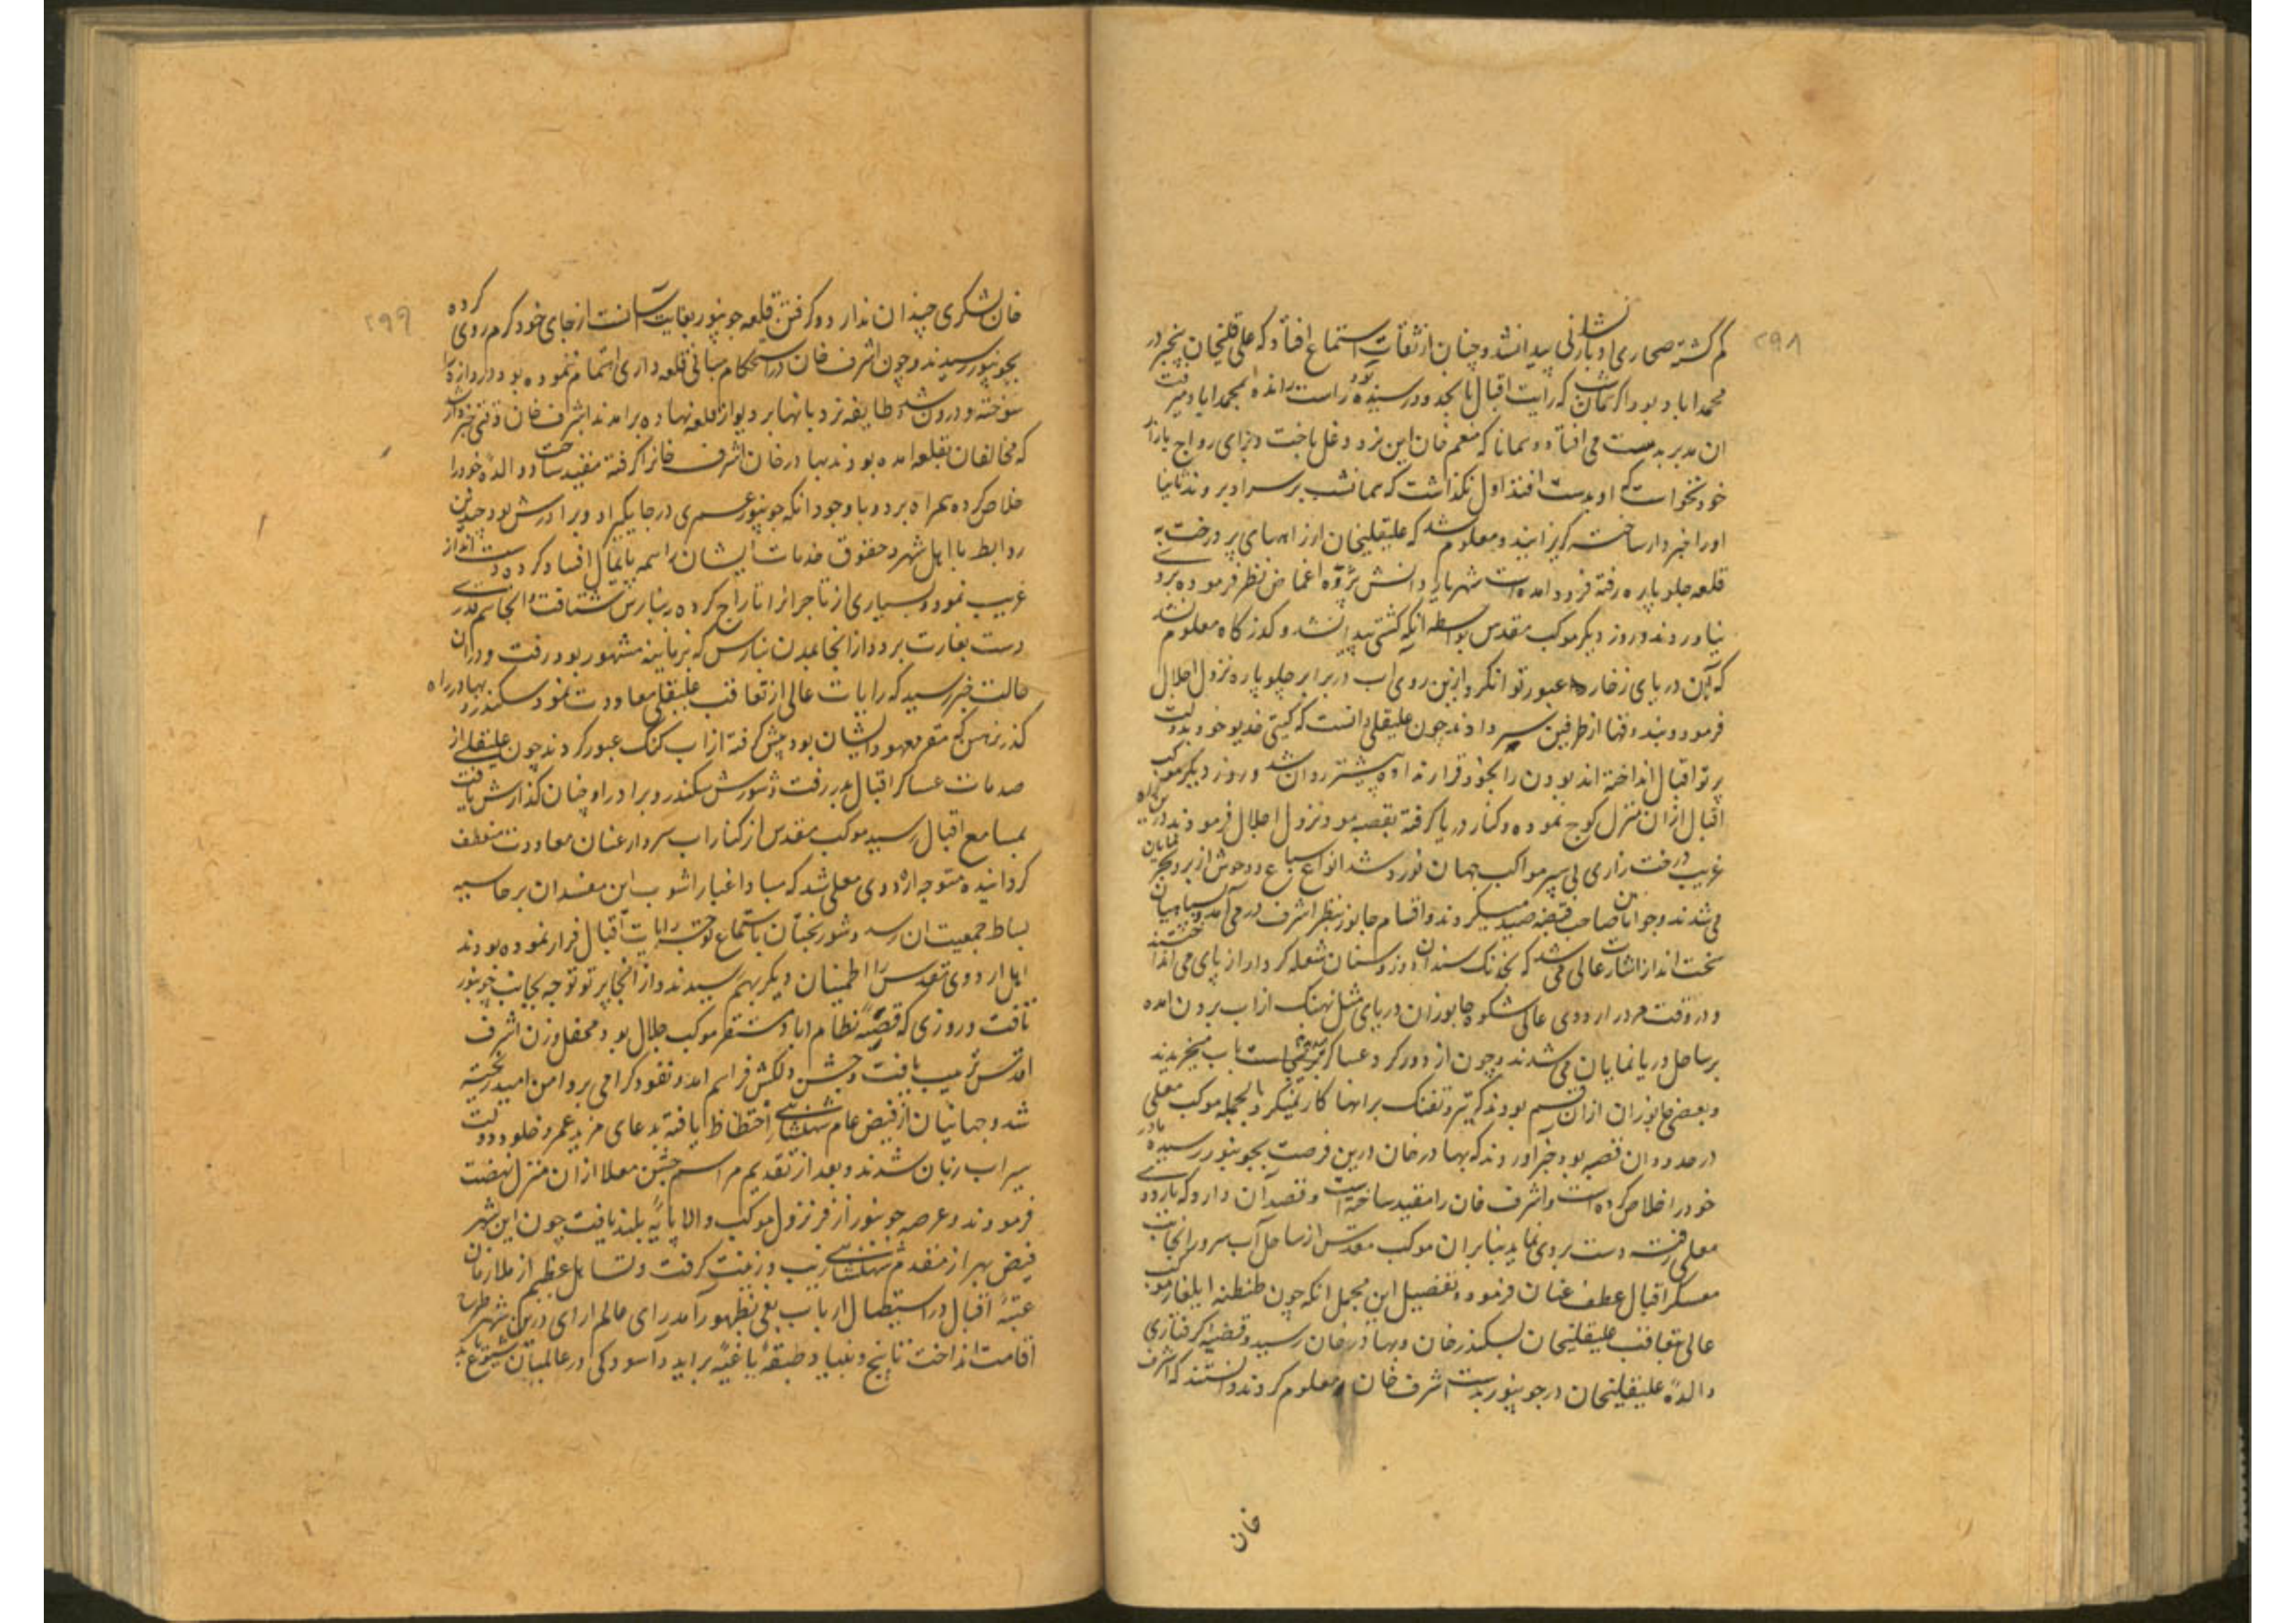 ۲۹۸
کم گشته صحاری ادبار نشانی پیدا نشد و چنان از ثقات استماع افتاد که علی قلیخان بنجبر در
محمداباد بود اگر همان شب که رایت اقبال بانجدود رسیده بود راست رانده بمحمداباد میرفت
ان مدبر بدست می افتاد و همانا که منعم خان این نرد دغل باخت و برای رواج بازار
خود نخواست که او بدست افتد اول نگذاشت که همانشب بر سر او بروند ثانیا
او را خبردار ساخته گریزانید و معلوم شد که علیقلیخان از راههای پر درخت به
قلعه جلوپاره رفته فرود امده است شهریار دانش پژوه اغماض نظر فرموده برو
نیاوردند و روز دیگر موکب مقدس بواسطه انکه کشتی پیدا نشد و گذرگاه معلوم نشد
که از آن دریای زخار عبور توان کرد ازین روی اب در برابر جلوپاره نزول اجلال
فرمودند و بندوقها از طرفین سر دادند چون علیقلی دانست که گیتی خدیو خود بدولت
پرتو اقبال انداخته اند بودن را بخود قرار نداده پیشتر روان شد و روز دیگر موکب
اقبال از ان منزل کوچ نموده و کنار دریا گرفته بقصبه مو و نزول اجلال فرمودند درین راه
غریب درخت زاری پی سپر مواکب جهان نورد شد انواع سباع و وحوش از بر و بحر نمایان
می شدند و جوانان صاحب قبضه صید میکردند و اقسام جانور بنظر اشرف در می آمد و سپاهیان
سخت انداز اشارت عالی می شد که بخدنک سندان دوز و سنان شعله کردار از پای می انداختند
و در وقت مرور اردوی عالی شکوه جانوران دریای مثل نهنک از اب برون امده
بر ساحل دریا نمایان می شدند و چون از دور گرد عساکر بر میخاست باب میخزیدند
و بعضی جانوران ازان قسم بودند که تیر و تفنک برانها کار نمیکرد بالجمله موکب معلی
در حدود ان قصبه بود خبر اوردند که بهادرخان درین فرصت بجونپور رسیده مادر
خود را خلاص کرده است و اشرف خان را مقید ساخته است و قصد آن دارد که باردوی
معلی رفته دست بردی نماید بنابران موکب مقدس از ساحل آب سرور انجانب
معسکر اقبال عطف عنان فرمود و تفصیل این مجمل انکه چون طنطنه ایلغار موکب
عالی بتعاقب علیقلیخان بسکندرخان و بهادرخان رسید و قضیه گرفتاری
والده علیقلیخان در جونپور بدست اشرف خان معلوم کردند دانستند که اشرف
خان
۲۹۹
خان لشکری چندان ندارد و گرفتن قلعه جونپور بغایت آسانست از جای خود گرم روی کرده
بجونپور رسیدند و چون اشرف خان در استحکام مبانی قلعه داری اهتمام ننموده بود دروازه را
سوخته و درون شد و طایفه نردبانها بر دیوار قلعه نهاده برامدند اشرف خان وقتی خبردار شد
که مخالفان بقلعه امده بودند بهادرخان اشرف خانرا گرفته مقید ساخت و والده خود را
خلاص کرده همراه برد و باوجود انکه جونپور عمری در جایگیر او و برادرش بود و چندین
روابط با اهل شهر و حقوق خدمات ایشان همه پایمال افساد کرده دست انداز
غریب نمود و بسیاری از تاجرانرا تاراج کرده ببنارس شتافت و انجا هم قدری
دست بغارت برد و از انجا بمدن بنارس که بزمانیه مشهور بود رفت و در ان
حالت خبر رسید که رایات عالی از تعاقب علیقلی معاودت نمود سکندر و بهادر راه
گذر نرهن که مقر معهود ایشان بود پیش گرفته از اب گنک عبور کردند چون علیقلی از
صدمات عساکر اقبال بدر رفت و شورش سکندر و برادر او چنان گذارش یافت
بمسامع اقبال رسید موکب مقدس از کنار اب سردار عنان معاودت منعطف
گردانیده متوجه اردوی معلی شد که مبادا غبار اشوب این مفسدان بر حاسیه
بساط جمعیت ان رسد و شوربختان باستماع توجه رایات اقبال فرار نموده بودند
اهل اردوی مقدس را اطمینان دیگر بهم رسیدند و از انجا پرتو توجه بجانب جونپور
تافت و روزی که قصبه نظام اباد مستقر موکب جلال بود محفل وزن اشرف
اقدس ترتیب یافت و جشن دلکش فراهم امد و نقود گرامی بر دامن امید ریخته
شد و جهانیان از فیض عام شهنشاهی احتظاظ یافته بدعای مزید عمر و خلود دولت
سیراب زبان شدند و بعد از تقدیم مراسم جشن معلا از ان منزل نهضت
فرمودند و عرصه جونپور از فر نزول موکب والا پایه بلند یافت چون این شهر
فیض بهر از مقدم شهنشاهی زیب و زینت گرفت و تساهل عظیم از ملازمان
عتبه اقبال در استیصال ارباب بغی بظهور آمد رای عالم ارای درین شهر طرح
اقامت انداخت تا بیخ و بنیاد طبقه باغیه براید و آسودگی در عالمیان شیوع یابد